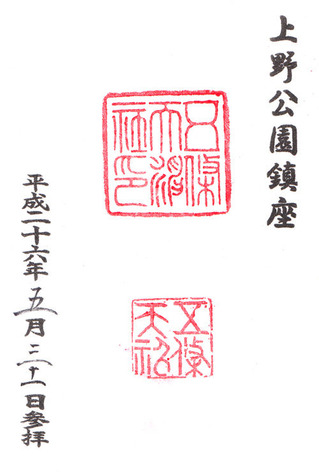 上野公園鎮座
五條
天神
社印
五條
天神
平成二十六年五月三十一日参拝